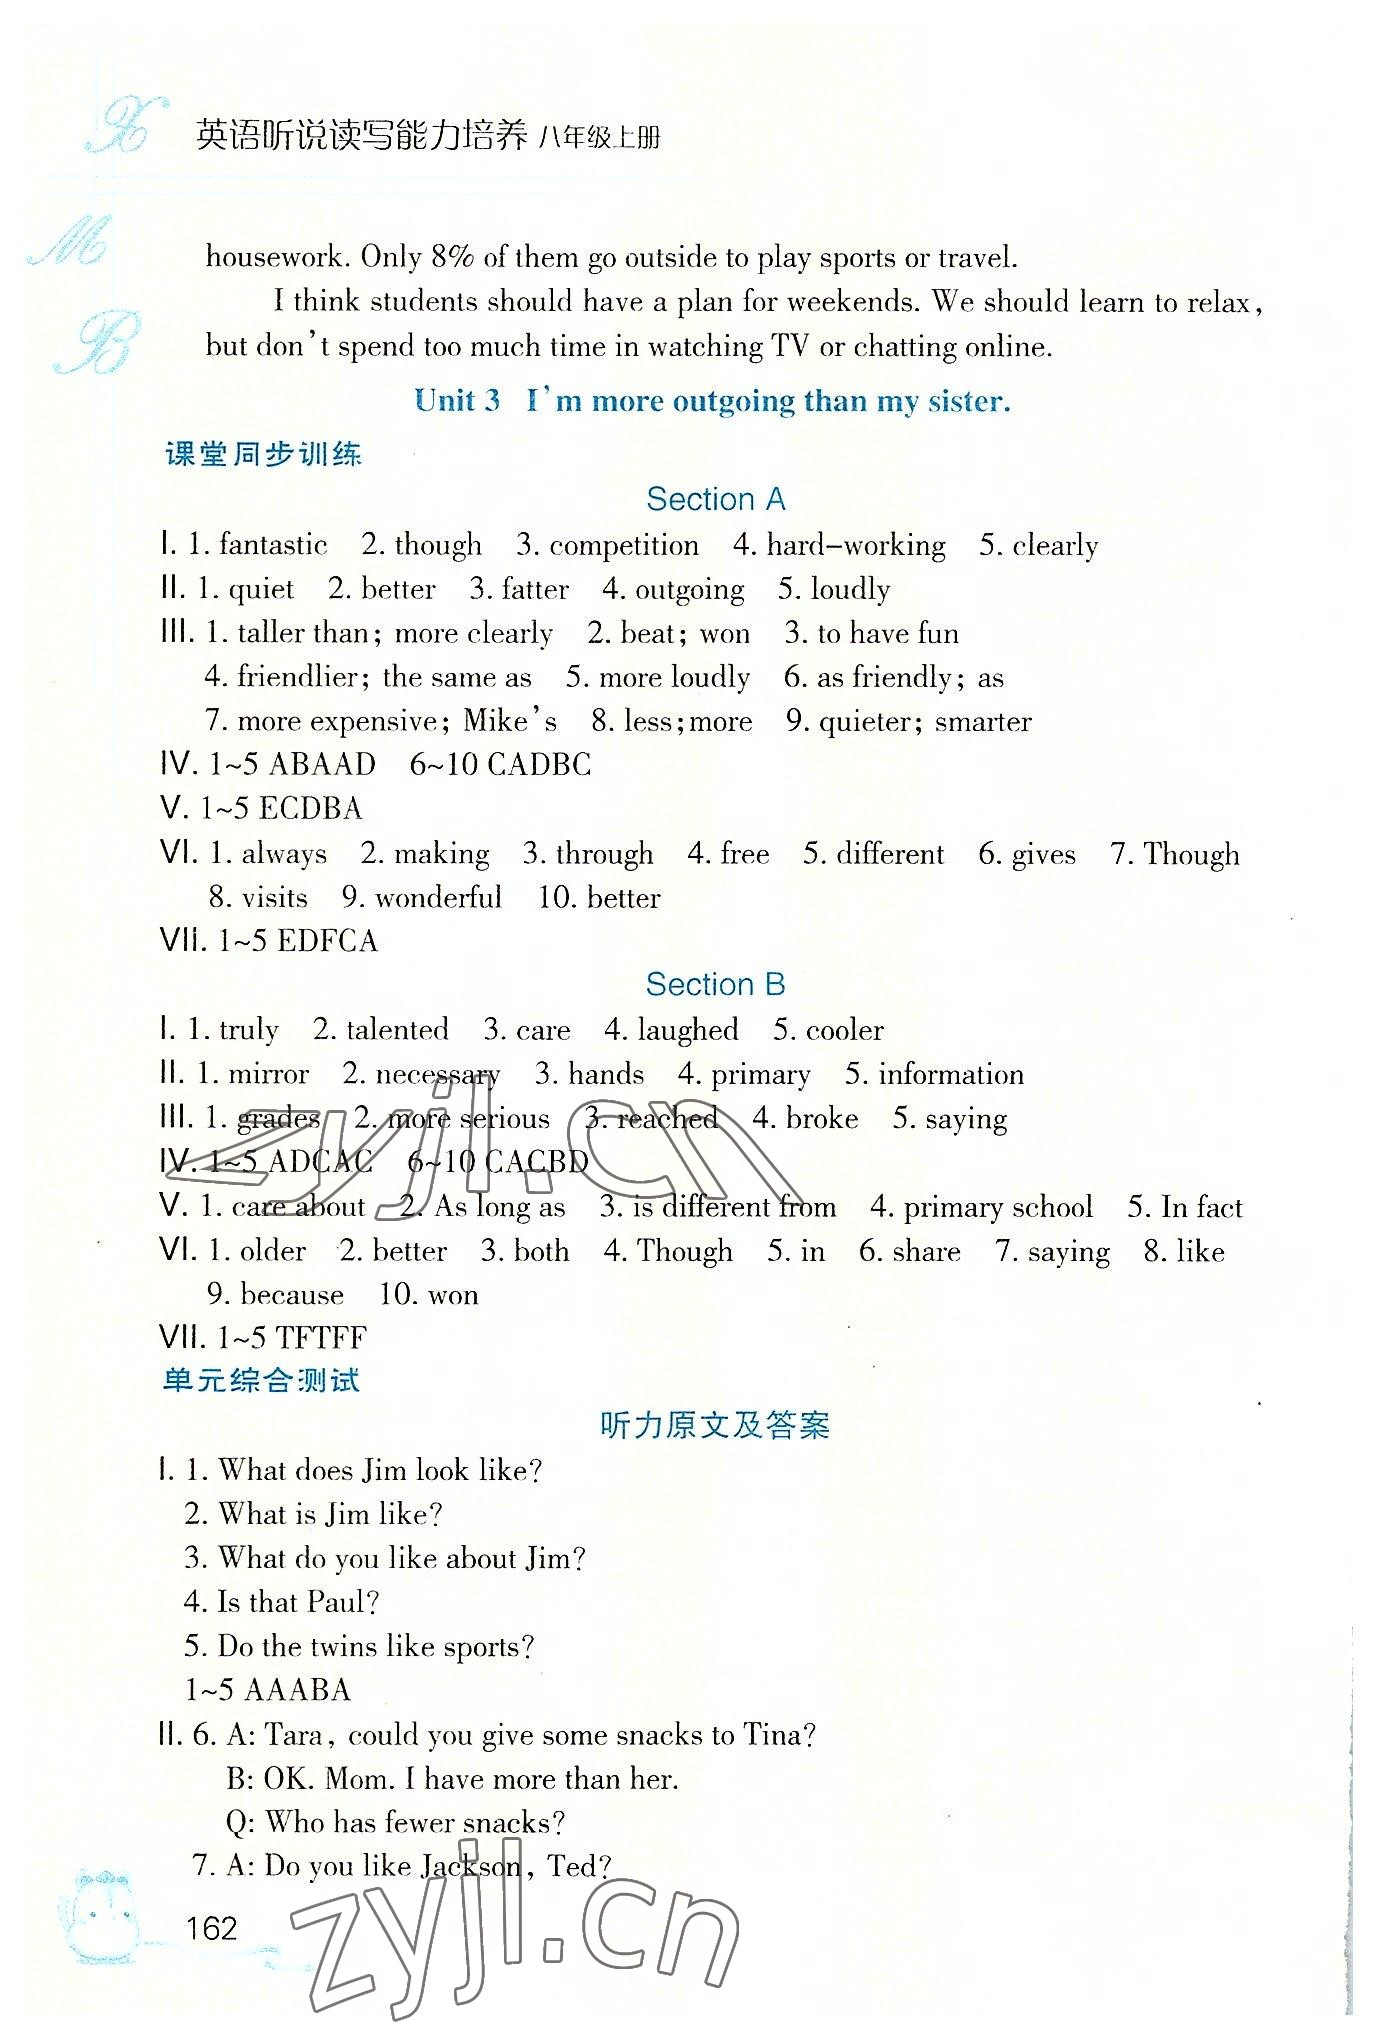 英语听说读写能力培养 八年级上册
housework. Only 8% of them go outside to play sports or travel.
I think students should have a plan for weekends. We should learn to relax,
but don't spend too much time in watching TV or chatting online.
Unit 3 I'm more outgoing than my sister.
课堂同步训练
Section A
I. 1. fantastic 2. though 3. competition 4. hard-working 5. clearly
II. 1. quiet 2. better 3. fatter 4. outgoing 5. loudly
III. 1. taller than; more clearly 2. beat; won 3. to have fun
4. friendlier; the same as 5. more loudly 6. as friendly; as
7. more expensive; Mike's 8. less;more 9. quieter; smarter
IV. 1~5 ABAAD 6~10 CADBC
V. 1~5 ECDBA
VI. 1. always 2. making 3. through 4. free 5. different 6. gives 7. Though
8. visits 9. wonderful 10. better
VII. 1~5 EDFCA
Section B
I. 1. truly 2. talented 3. care 4. laughed 5. cooler
II. 1. mirror 2. necessary 3. hands 4. primary 5. information
III. 1. grades 2. more serious 3. reached 4. broke 5. saying
IV. 1~5 ADCAC 6~10 CACBD
V. 1. care about 2. As long as 3. is different from 4. primary school 5. In fact
VI. 1. older 2. better 3. both 4. Though 5. in 6. share 7. saying 8. like
9. because 10. won
VII. 1~5 TFTFF
单元综合测试
听力原文及答案
I. 1. What does Jim look like?
2. What is Jim like?
3. What do you like about Jim?
4. Is that Paul?
5. Do the twins like sports?
1~5 AAABA
II. 6. A: Tara, could you give some snacks to Tina?
B: OK. Mom. I have more than her.
Q: Who has fewer snacks?
7. A: Do you like Jackson, Ted?
162
X
M
B
zyjl.cn
zyjl.cn